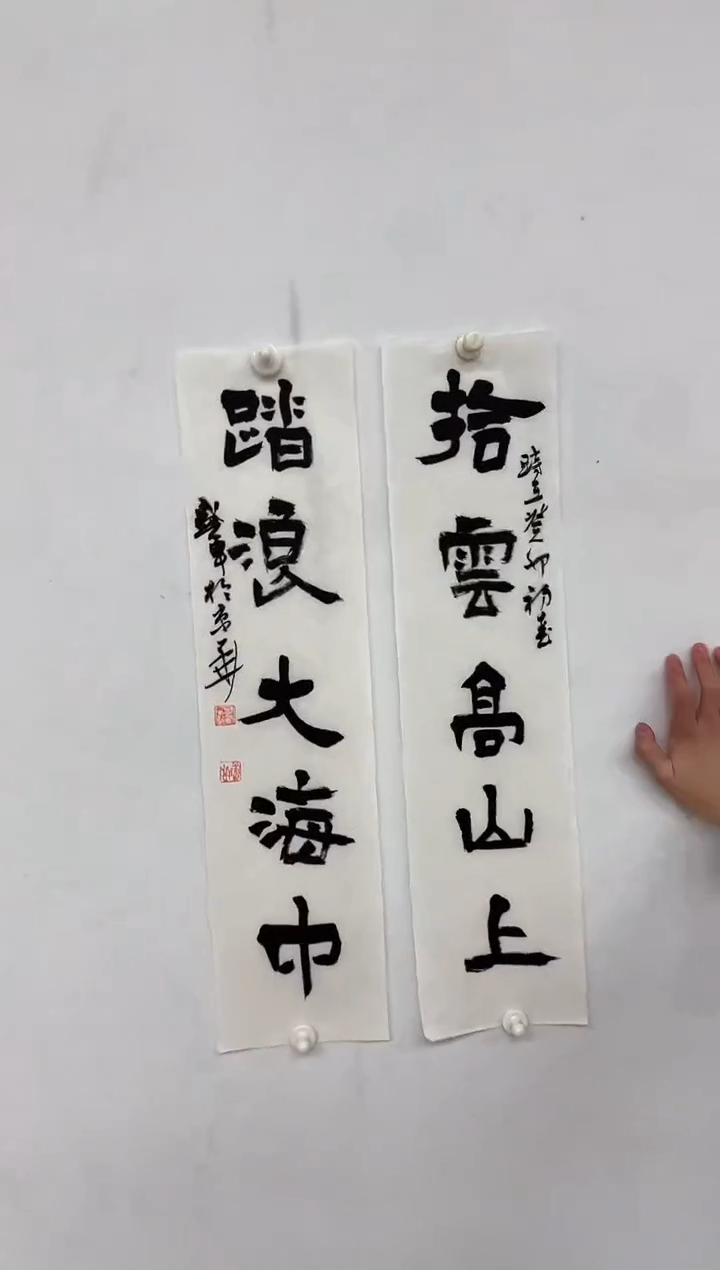 拾雲高山上
時在癸卯初春
踏浪大海中
於京華